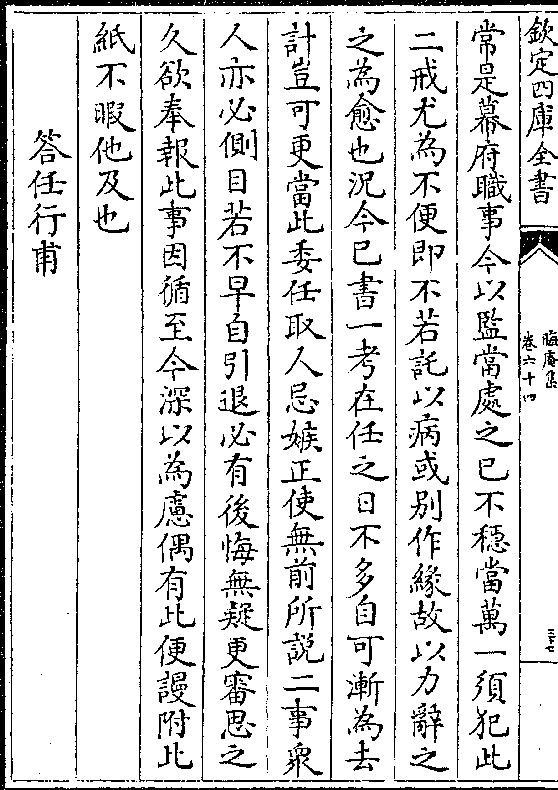 欽定四庫全書
晦庵集
卷六十四
三十七
常是幕府職事今以監當處之已不穩當萬一須犯此
二戒尤為不便即不若託以病或別作緣故以力辭之
之為愈也況今已書一考在任之日不多自可漸為去
計豈可更當此委任取人忌嫉正使無前所說二事衆
人亦必側目若不早自引退必有後悔無疑更審思之
久欲奉報此事因循至今深以為慮偶有此便謾附此
紙不暇他及也
答任行甫